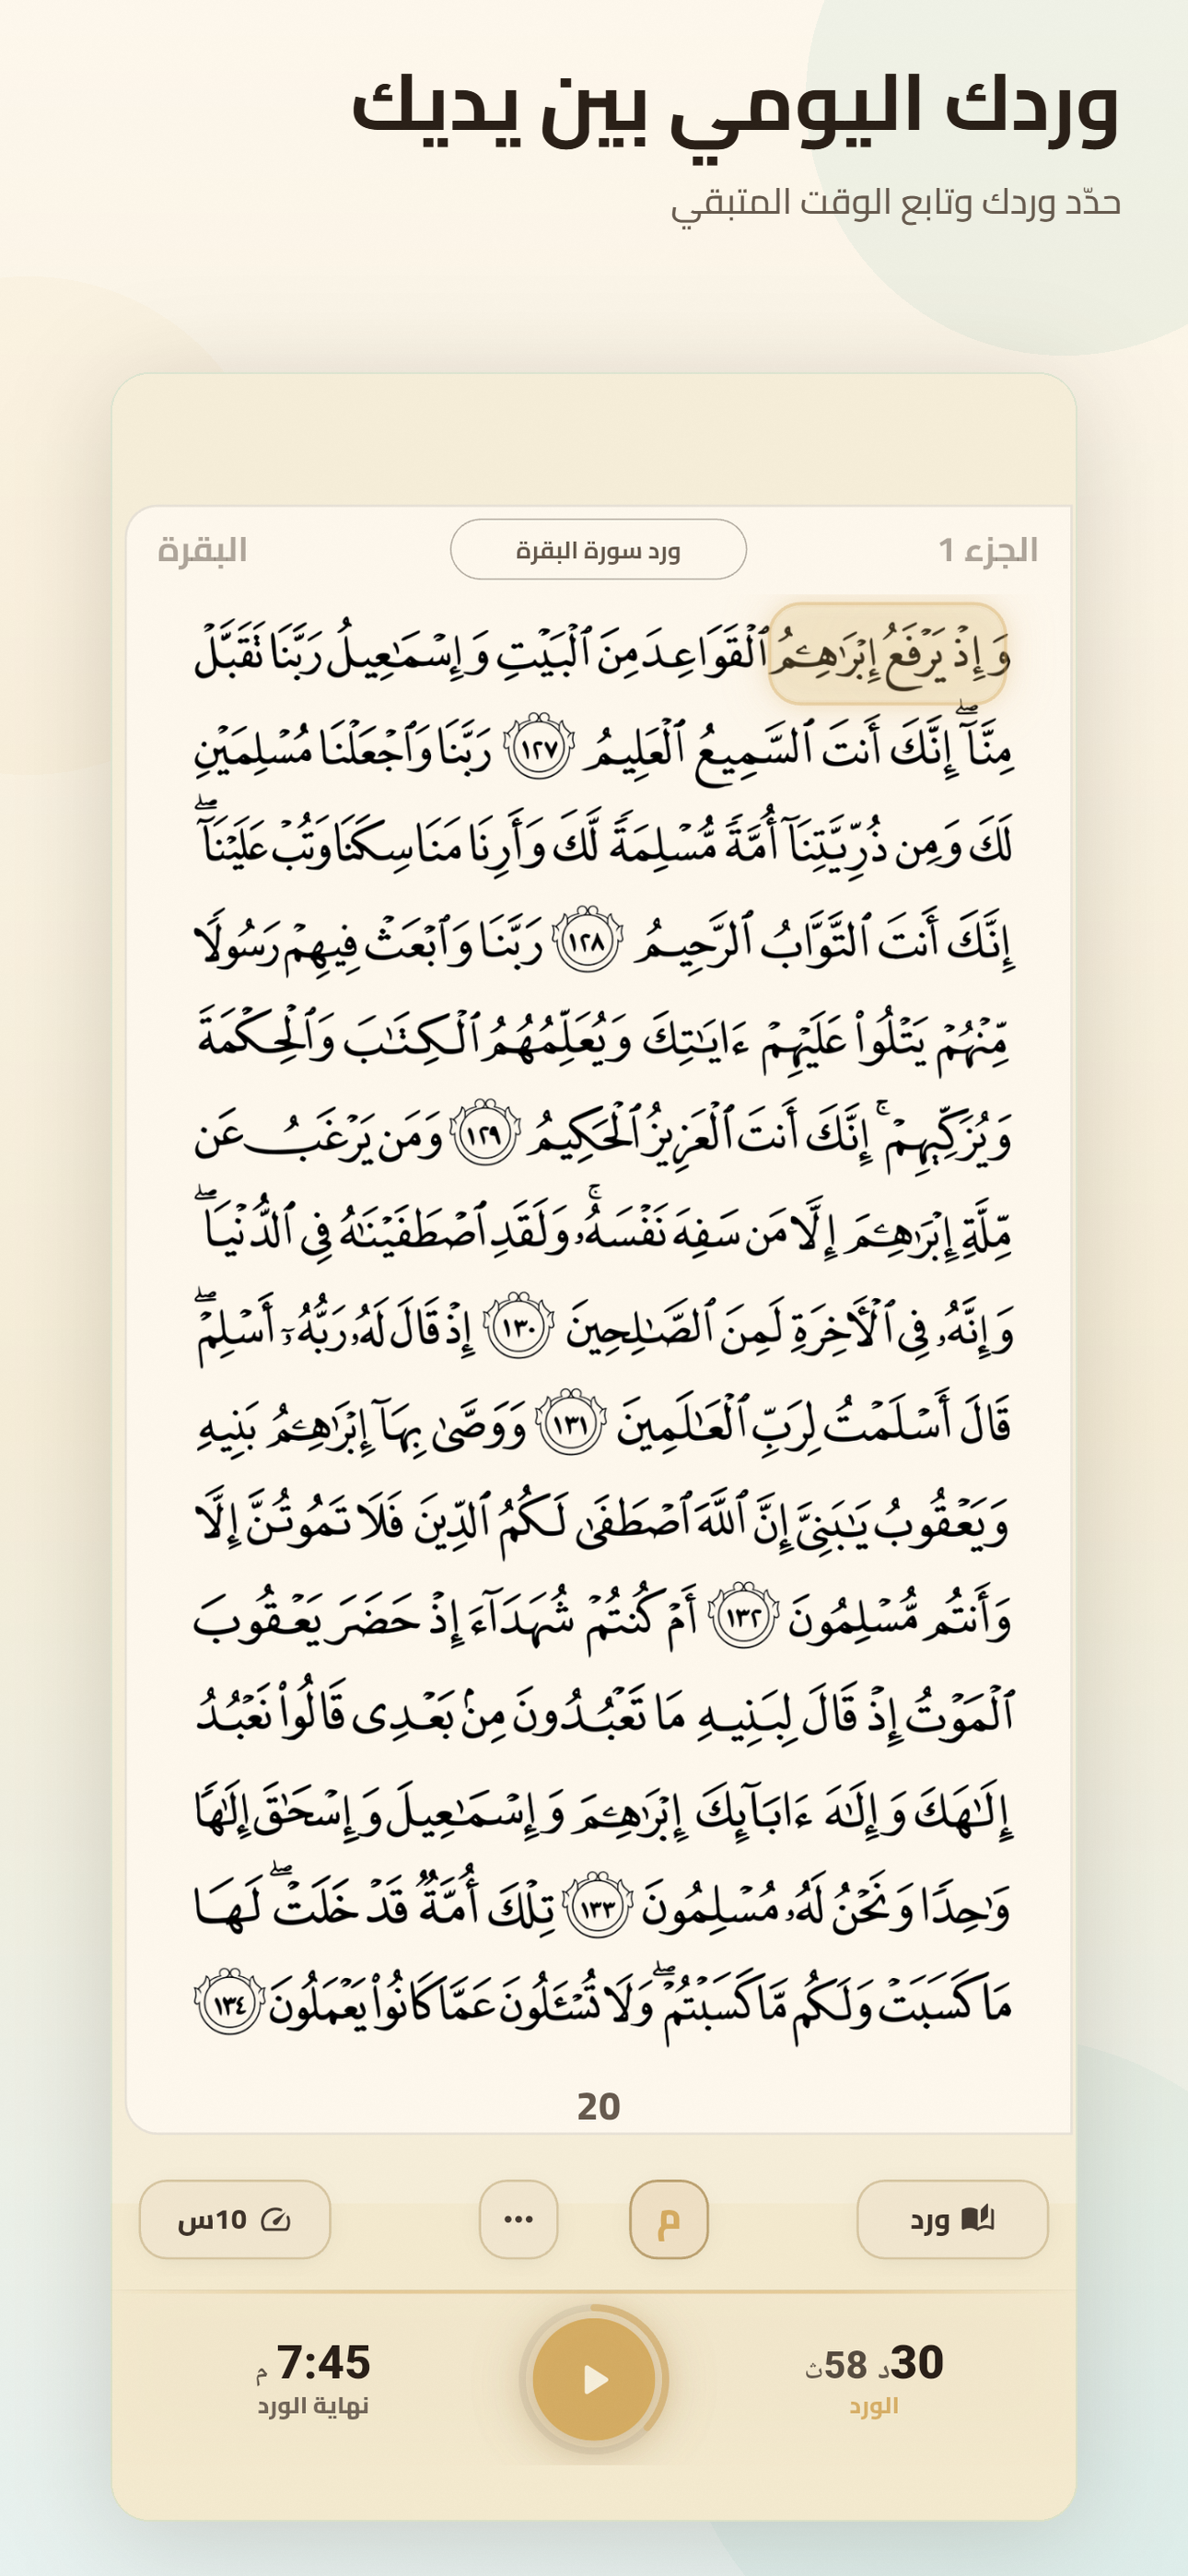 وردك اليومي بين يديك
حدّد وردك وتابع الوقت المتبقي
الجزء 1
ورد سورة البقرة
البقرة
وَإِذۡ يَرۡفَعُ إِبۡرَٰهِـۧمُ ٱلۡقَوَاعِدَ مِنَ ٱلۡبَيۡتِ وَإِسۡمَٰعِيلُ رَبَّنَا تَقَبَّلۡ
مِنَّآۖ إِنَّكَ أَنتَ ٱلسَّمِيعُ ٱلۡعَلِيمُ ١٢٧ رَبَّنَا وَٱجۡعَلۡنَا مُسۡلِمَيۡنِ
لَكَ وَمِن ذُرِّيَّتِنَآ أُمَّةٗ مُّسۡلِمَةٗ لَّكَ وَأَرِنَا مَنَاسِكَنَا وَتُبۡ عَلَيۡنَآۖ
إِنَّكَ أَنتَ ٱلتَّوَّابُ ٱلرَّحِيمُ ١٢٨ رَبَّنَا وَٱبۡعَثۡ فِيهِمۡ رَسُولٗا
مِّنۡهُمۡ يَتۡلُواْ عَلَيۡهِمۡ ءَايَٰتِكَ وَيُعَلِّمُهُمُ ٱلۡكِتَٰبَ وَٱلۡحِكۡمَةَ
وَيُزَكِّيهِمۡۚ إِنَّكَ أَنتَ ٱلۡعَزِيزُ ٱلۡحَكِيمُ ١٢٩ وَمَن يَرۡغَبُ عَن
مِّلَّةِ إِبۡرَٰهِـۧمَ إِلَّا مَن سَفِهَ نَفۡسَهُۥۚ وَلَقَدِ ٱصۡطَفَيۡنَٰهُ فِي ٱلدُّنۡيَاۖ
وَإِنَّهُۥ فِي ٱلۡأٓخِرَةِ لَمِنَ ٱلصَّٰلِحِينَ ١٣٠ إِذۡ قَالَ لَهُۥ رَبُّهُۥٓ أَسۡلِمۡۖ
قَالَ أَسۡلَمۡتُ لِرَبِّ ٱلۡعَٰلَمِينَ ١٣١ وَوَصَّىٰ بِهَآ إِبۡرَٰهِـۧمُ بَنِيهِ
وَيَعۡقُوبُ يَٰبَنِيَّ إِنَّ ٱللَّهَ ٱصۡطَفَىٰ لَكُمُ ٱلدِّينَ فَلَا تَمُوتُنَّ إِلَّا
وَأَنتُم مُّسۡلِمُونَ ١٣٢ أَمۡ كُنتُمۡ شُهَدَآءَ إِذۡ حَضَرَ يَعۡقُوبَ
ٱلۡمَوۡتُ إِذۡ قَالَ لِبَنِيهِ مَا تَعۡبُدُونَ مِنۢ بَعۡدِي قَالُواْ نَعۡبُدُ
إِلَٰهَكَ وَإِلَٰهَ ءَابَآئِكَ إِبۡرَٰهِـۧمَ وَإِسۡمَٰعِيلَ وَإِسۡحَٰقَ إِلَٰهٗا
وَٰحِدٗا وَنَحۡنُ لَهُۥ مُسۡلِمُونَ ١٣٣ تِلۡكَ أُمَّةٞ قَدۡ خَلَتۡۖ لَهَا
مَا كَسَبَتۡ وَلَكُم مَّا كَسَبۡتُمۡۖ وَلَا تُسۡـَٔلُونَ عَمَّا كَانُواْ يَعۡمَلُونَ ١٣٤
20
ورد
م
...
10س
30د 58ث
7:45 م
الورد
نهاية الورد